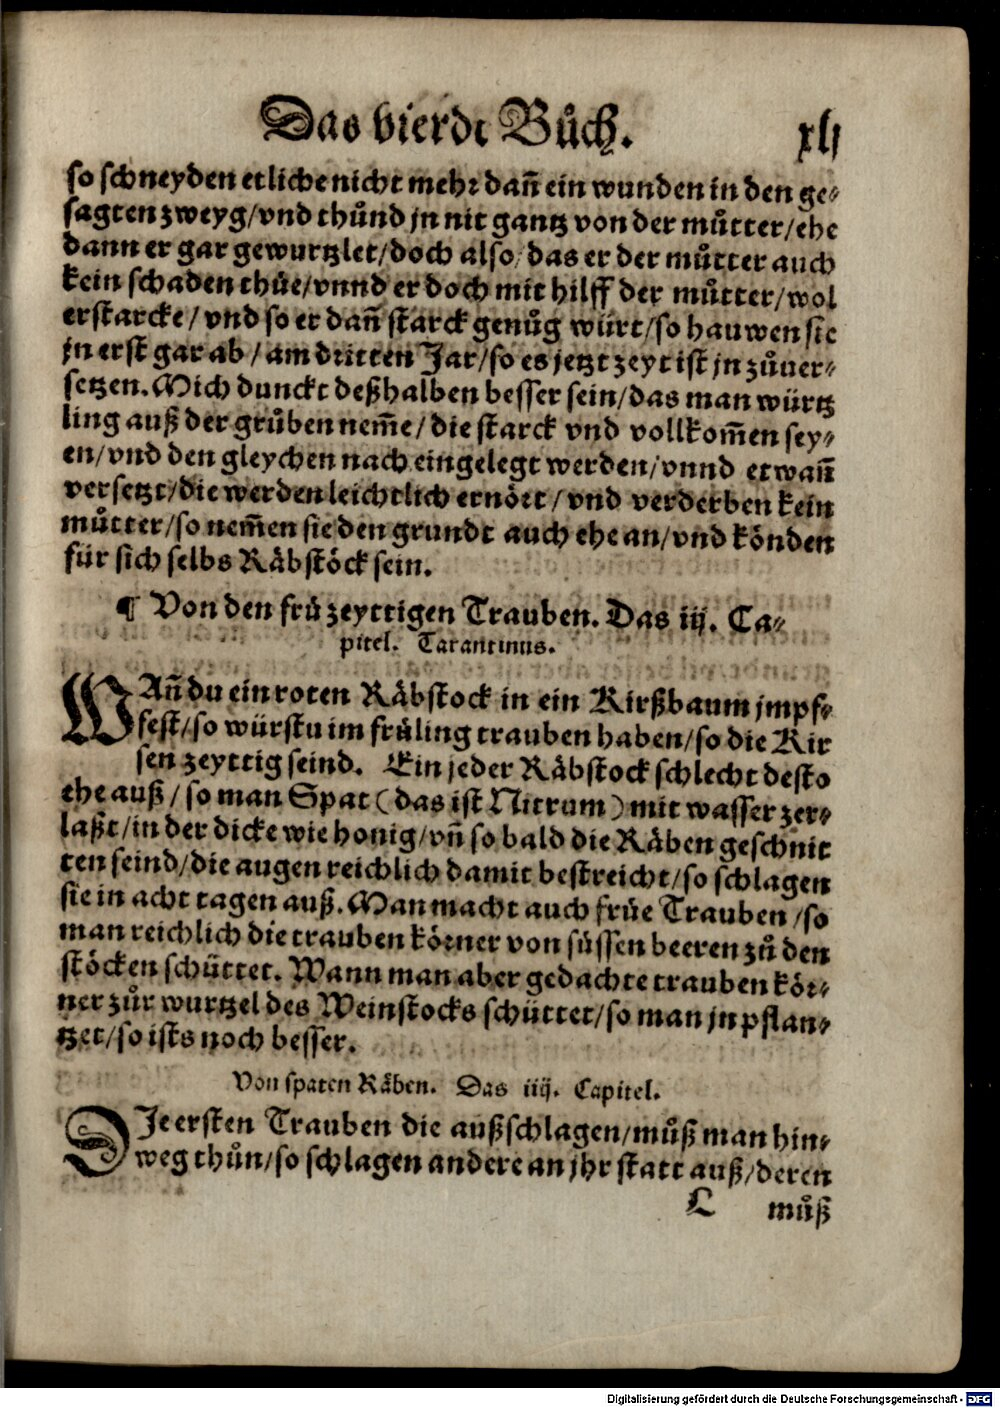 Das vierdt Bůch. xlj
so schneyden etliche nicht mehr dañ ein wunden in den ge-
sagten zweyg/vnd thůnd jn nit gantz von der můtter/ehe
dann er gar gewurtzlet/doch also/das er der můtter auch
kein schaden thüe/vnnd er doch mit hilff der můtter/wol
erstarcke/vnd so er dañ starck genůg würt/so hauwen sie
jn erst gar ab/am dritten Jar/so es jetzt zeyt ist jn zůuer-
setzen. Mich dunckt deßhalben besser sein/das man würtz
ling auß der grůben nem̃e/die starck vnd vollkom̃en sey-
en/vnd den gleychen nach eingelegt werden/vnnd etwañ
versetzt/die werden leichtlich ernört/vnd verderben kein
můtter/so nem̃en sie den grundt auch ehe an/vnd könden
für sich selbs Räbstöck sein.
¶ Von den frü zeyttigen Trauben. Das iij. Ca-
pitel. Tarantinus.
WAñ du ein roten Räbstock in ein Kirßbaum jmpf-
fest/so würstu im früling trauben haben/so die Kir
sen zeyttig seind. Ein jeder Räbstock schlecht desto
ehe auß/so man Spat (das ist Nitrum) mit wasser zer-
laßt/in der dicke wie honig/vñ so bald die Räben geschnit
ten seind/die augen reichlich damit bestreicht/so schlagen
sie in acht tagen auß. Man macht auch früe Trauben/so
man reichlich die trauben körner von süssen beeren zů den
stöcken schüttet. Wann man aber gedachte trauben kör-
ner zůr wurtzel des Weinstocks schüttet/so man jn pflan-
tzet/so ists noch besser.
Von spaten Räben. Das iiij. Capitel.
DIe ersten Trauben die außschlagen/můß man hin-
weg thůn/so schlagen andere an jhr statt auß/deren
L můß
Digitalisierung gefördert durch die Deutsche Forschungsgemeinschaft - DFG